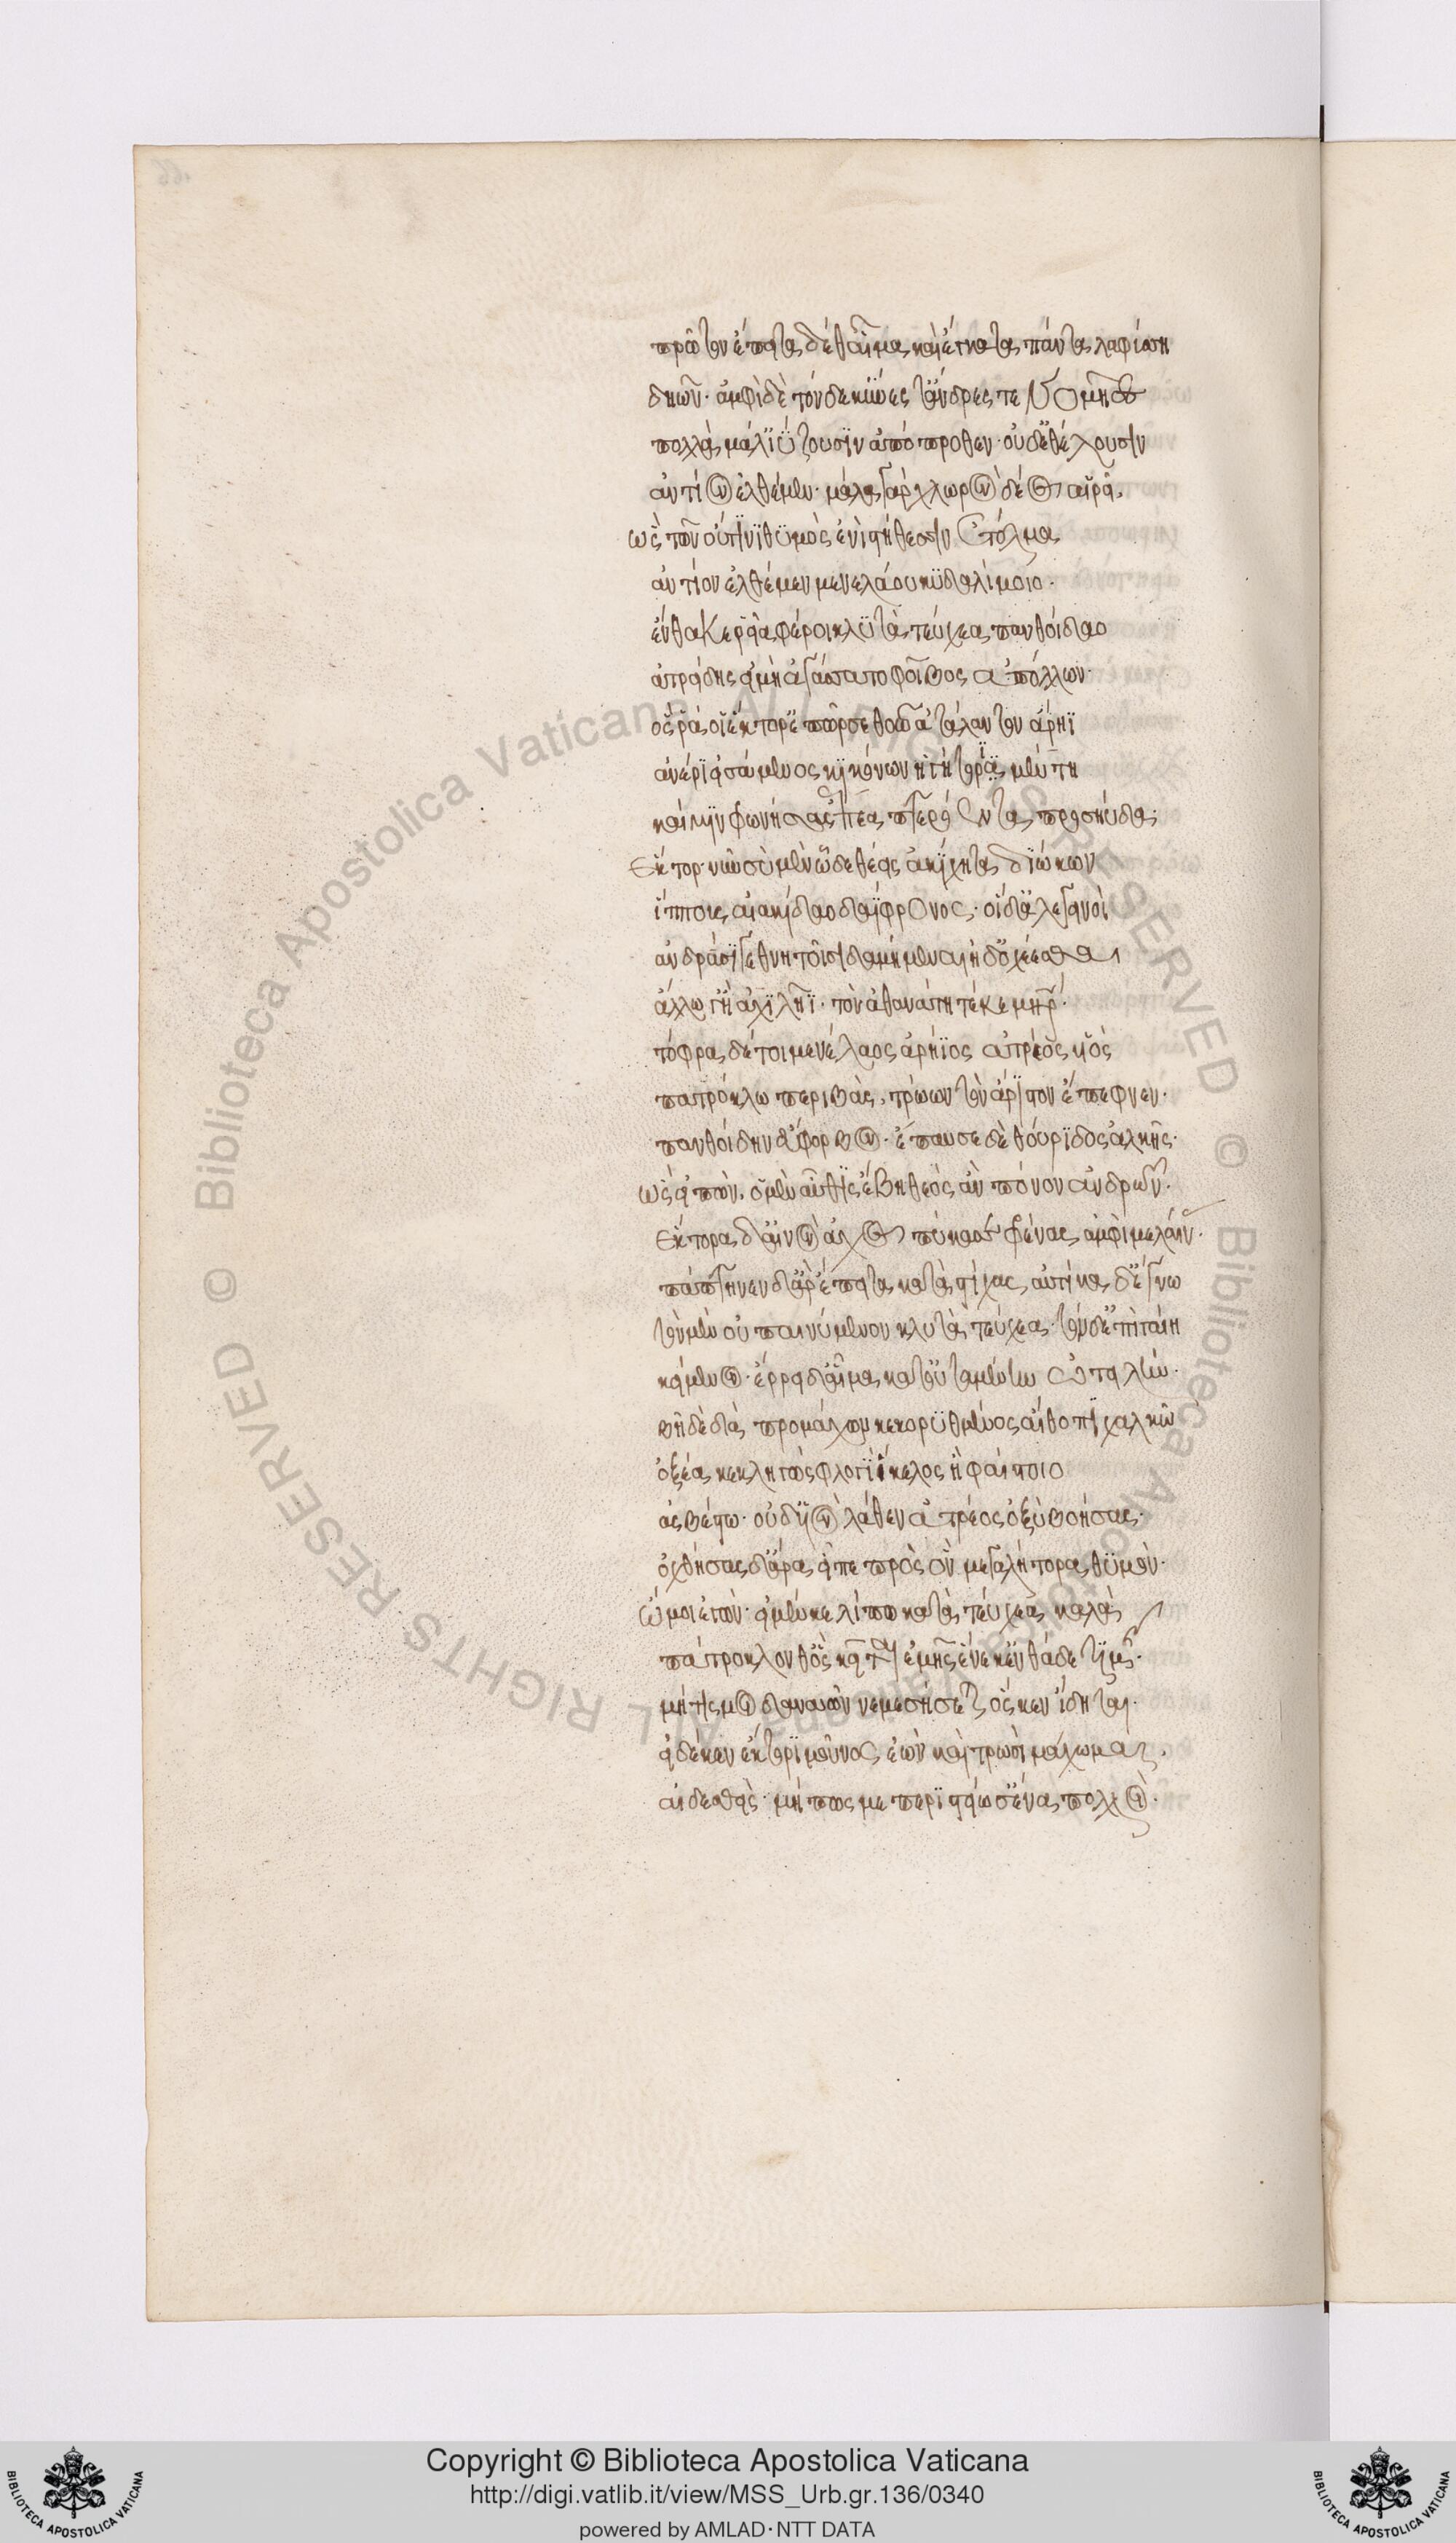 πρῶτον ἔπειτα δέ θ' αἷμα καὶ ἔγκατα πάντα λαφύσσει
δηῶν· ἀμφὶ δὲ τόνδε κύνες τ' ἄνδρες τε νομῆες
πολλὰ μάλ' ἰΰζουσϊν ἀπόπροθεν· οὐδ' ἐθέλουσιν
ἀντίον ἐλθέμεν· μάλα γὰρ χλωρὸν δέος αἱρεῖ.
ὣς τῶν οὔτινϊ θϋμὸς ἐνὶ στήθεσσιν ἐτόλμα
ἀντίον ἐλθέμεν μενελάου κϋδαλίμοιο.
ἔνθα κε ῥεῖα φέροι κλϋτὰ τεύχεα πανθοίδαο
ἀτρείδης εἰ μή οἱ ἀγάσσατο φοῖβος ἀπόλλων·
ὅς ῥά οἱ ἕκτορ' ἐπῶρσε θοῶ ἀτάλαντον ἄρηϊ
ἀνέρϊ εἰσάμενος κϊκόνων ἡγήτορϊ μέντη
καί μϊν φωνήσας ἔπεα πτερόεντα προσηύδα·
Ἕκτορ· νῦν σὺ μὲν ὧδε θέεις ἀκίχητα διώκων
ἵππους αἰακίδαο δαΐφρονος· οἱ δ' ἀλεγεινοὶ
ἀνδράσϊ γε θνητοῖσι δαμήμεναι ἠδ' ὀχέεσθαι
ἄλλω γ' ἢ ἀχϊλῆϊ· τὸν ἀθανάτη τέκε μήτηρ·
τόφρα δέ τοι μενέλαος ἀρήϊος ἀτρέος υἱὸς
πατρόκλω περιβὰς, τρώων τὸν ἄριστον ἔπεφνεν·
πανθοίδην εὔφορβον· ἔπαυσε δὲ θούρϊδος ἀλκῆς·
ὣς εἰπὼν, ὁ μὲν αὖθις ἔβη θεὸς ἂν πόνον ἀνδρῶν·
Ἕκτορα δ' αἰνὸν ἄχος πύκασε φρένας ἀμφιμελαίνας·
πάπτηνεν δ' ἄρ' ἔπειτα κατὰ στίχας, αὐτίκα δ' ἔγνω
τὸν μὲν ἀπαινύμενον κλυτὰ τεύχεα· τὸν δ' ἐπὶ γαίη
κείμενον· ἔρρει δ' αἷμα κατ' οὐταμένην ὠτειλήν·
βῆ δὲ διὰ προμάχων κεκορϋθμένος αἴθοπϊ χαλκῶ
ὀξέα κεκληγὼς φλογὶ εἴκελος ἡφαίστοιο
ἀσβέστω· οὐδ' υἱὸν λάθεν ἀτρέος ὀξὺ βοήσας·
ὀχθήσας δ' ἄρα εἶπε πρὸς ὃν μεγαλήτορα θϋμόν·
ὤ μοι ἐγὼν· εἰ μέν κε λίπω κατὰ τεύχεα καλὰ
πάτροκλον θ' ὃς κεῖται ἐμῆς ἕνεκ' ἐνθάδε τϊμῆς·
μή τις μοι δαναῶν νεμεσήσεται ὅς κεν ἴδηται·
εἰ δέ κεν ἕκτορϊ μοῦνος ἐὼν καὶ τρωσὶ μάχωμαι,
αἰδεσθεὶς· μή πως με περιστείωσ' ἕνα πολλοί·
Copyright © Biblioteca Apostolica Vaticana
http://digi.vatlib.it/view/MSS_Urb.gr.136/0340
powered by AMLAD·NTT DATA